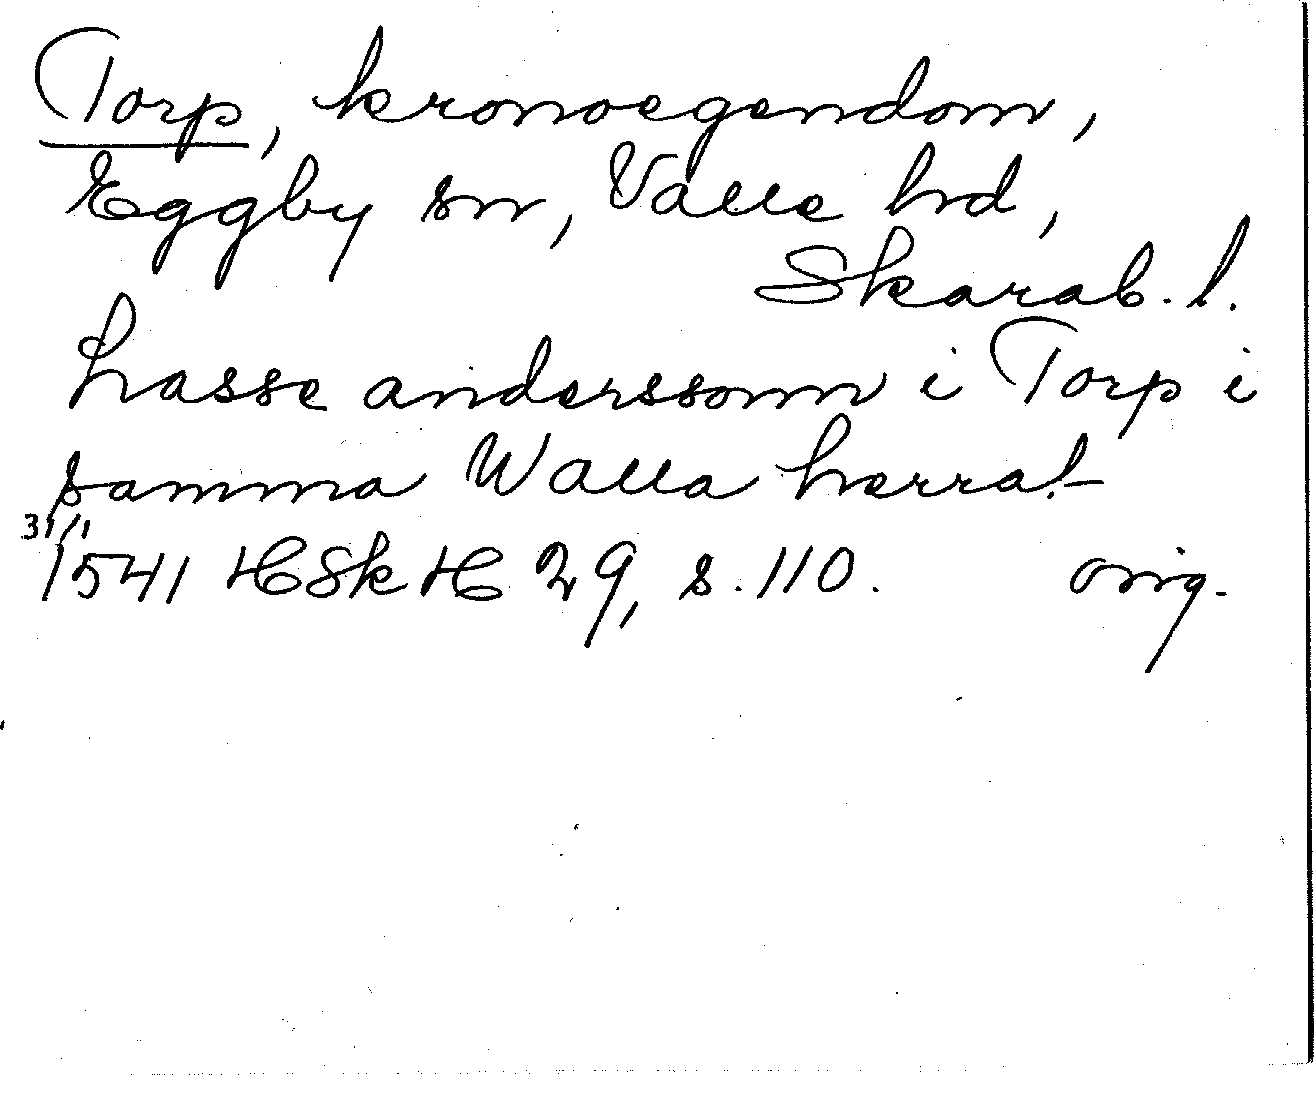 Torp, kronoegendom,
Eggby sn, Valle hd,
Skarab. l.
hasse anderssonn i Torp i
samma Walla herrat
31/1
1541 HSkH 29, s. 110. orig.